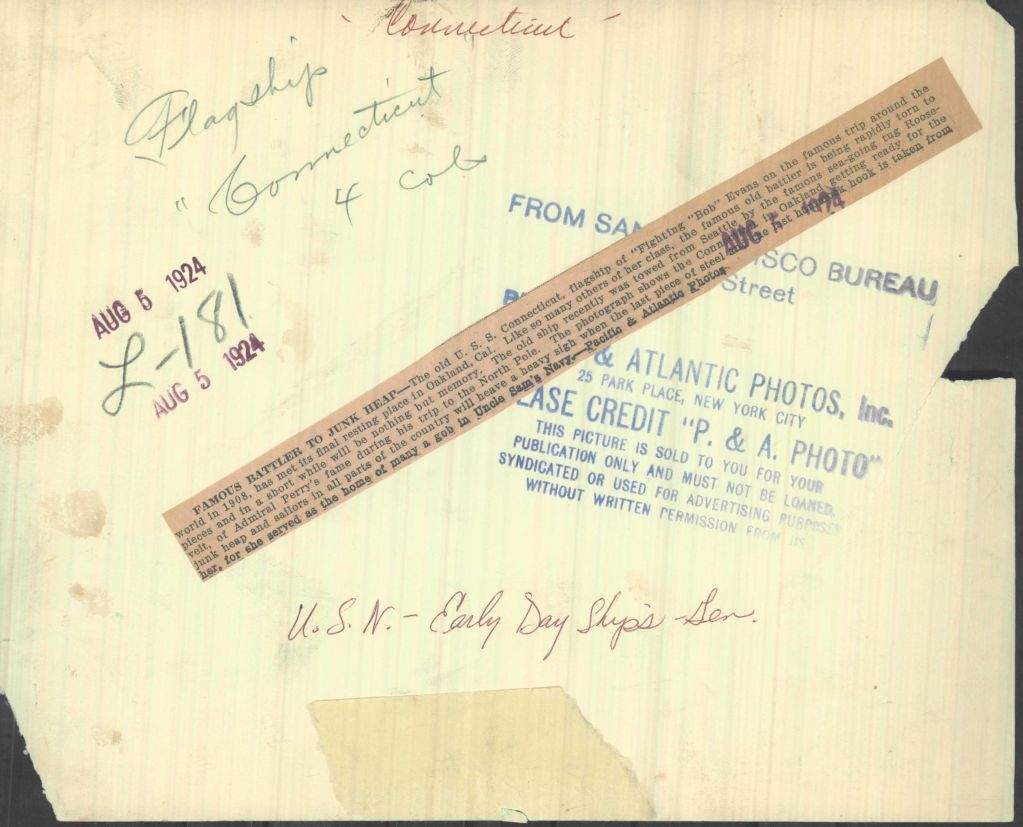 "Connecticut"
Flagship
"Connecticut
4 col
AUG 5 1924
L-181
AUG 5 1924
FAMOUS BATTLER TO JUNK HEAP—The old U. S. S. Connecticut, flagship of "Fighting "Bob" Evans on the famous trip around the
world in 1908, has met its final resting place in Oakland, Cal. Like so many others of her class, the famous old battler is being rapidly torn to
pieces and in a short while will be nothing but memory. The old ship recently was towed from Seattle by the famous sea-going tug Roose-
velt, of Admiral Perry's fame during his trip to the North Pole. The photograph shows the Conn in Oakland getting ready for the
junk heap and sailors in all parts of the country will leave a heavy sigh when the last piece of steel last hook is taken from
her, for she served as the home of many a gob in Uncle Sam's Navy.—Pacific & Atlantic Photos
AUG 5 1924
FROM SAN CISCO BUREAU
Street
& ATLANTIC PHOTOS, Inc.
25 PARK PLACE, NEW YORK CITY
EASE CREDIT "P. & A. PHOTO"
THIS PICTURE IS SOLD TO YOU FOR YOUR
PUBLICATION ONLY AND MUST NOT BE LOANED,
SYNDICATED OR USED FOR ADVERTISING PURPOSES
WITHOUT WRITTEN PERMISSION FROM US
U.S.N. - Early Day Ships - Gen.